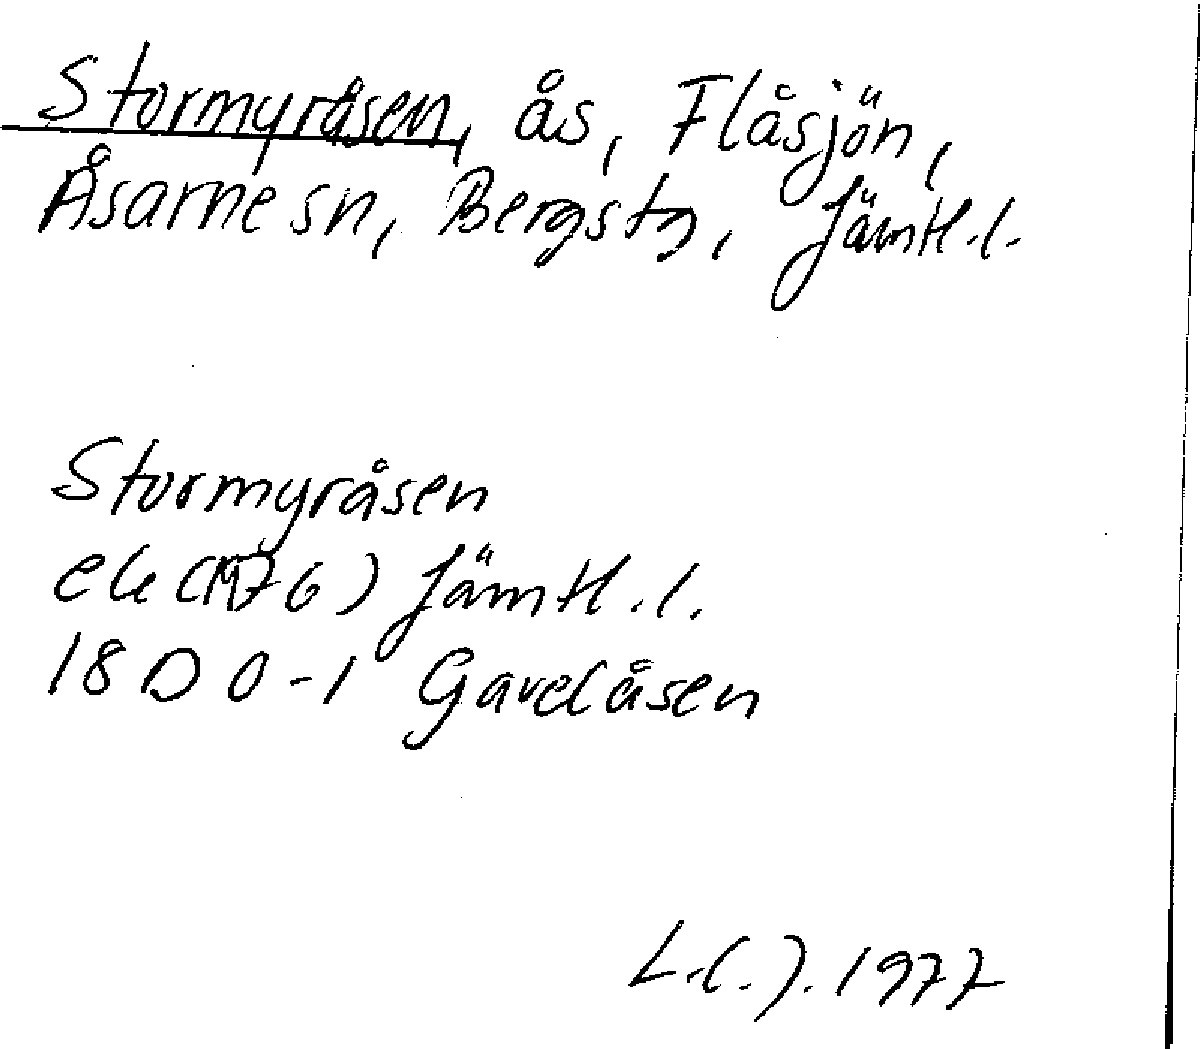 Stormyråsen, ås, Flåsjön,
Åsarne sn, Bergs tg, Jämtl.l.
Stormyråsen
ek (1976) Jämtl.l.
18 D 0-1 Gavelåsen
1977